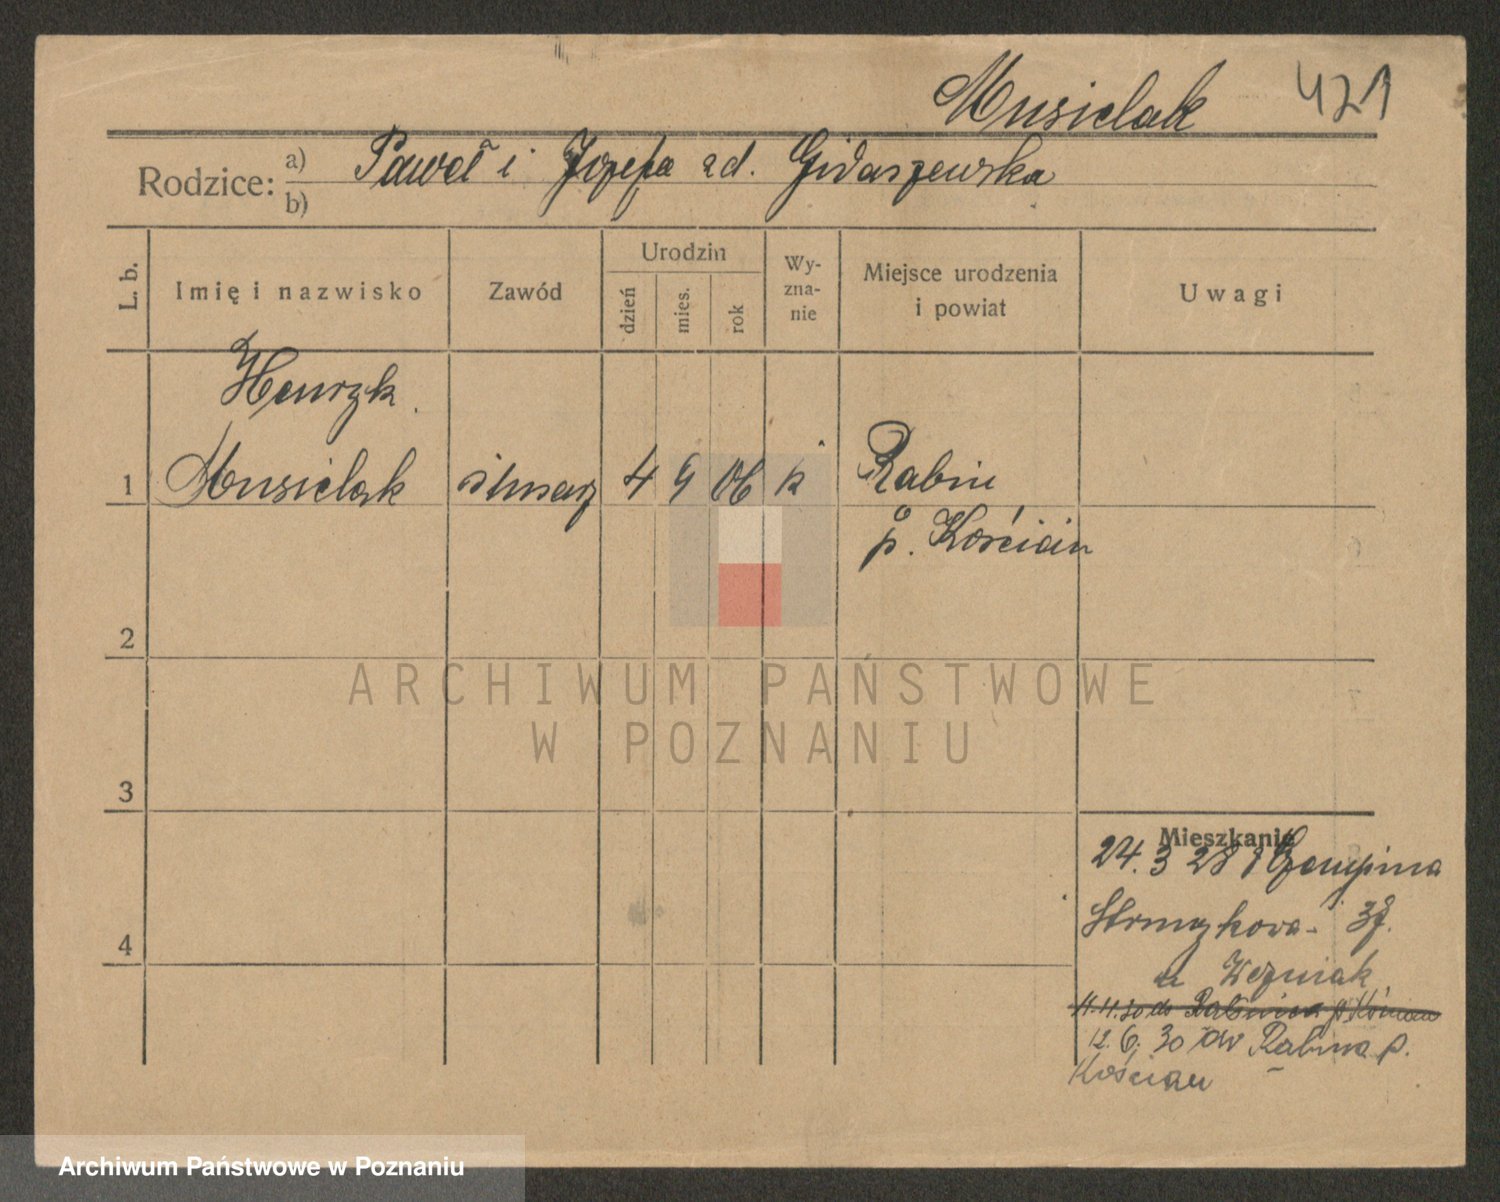 Musielak 421
Rodzice: a) b) Paweł i Józefa zd. Gidaszewska
L. b.
Imię i nazwisko
Zawód
Urodzin
dzień mies. rok
Wy-
zna-
nie
Miejsce urodzenia
i powiat
Uwagi
Henryk
1 Musielak ślusarz 4 9 06 k Rabin
p. Kościan
2
3
4
Mieszkanie
24.3 28 z Czempina
u Woźniak
12. 6. 30 do Rabina p.
Kościan
ARCHIWUM PAŃSTWOWE
W POZNANIU
Archiwum Państwowe w Poznaniu